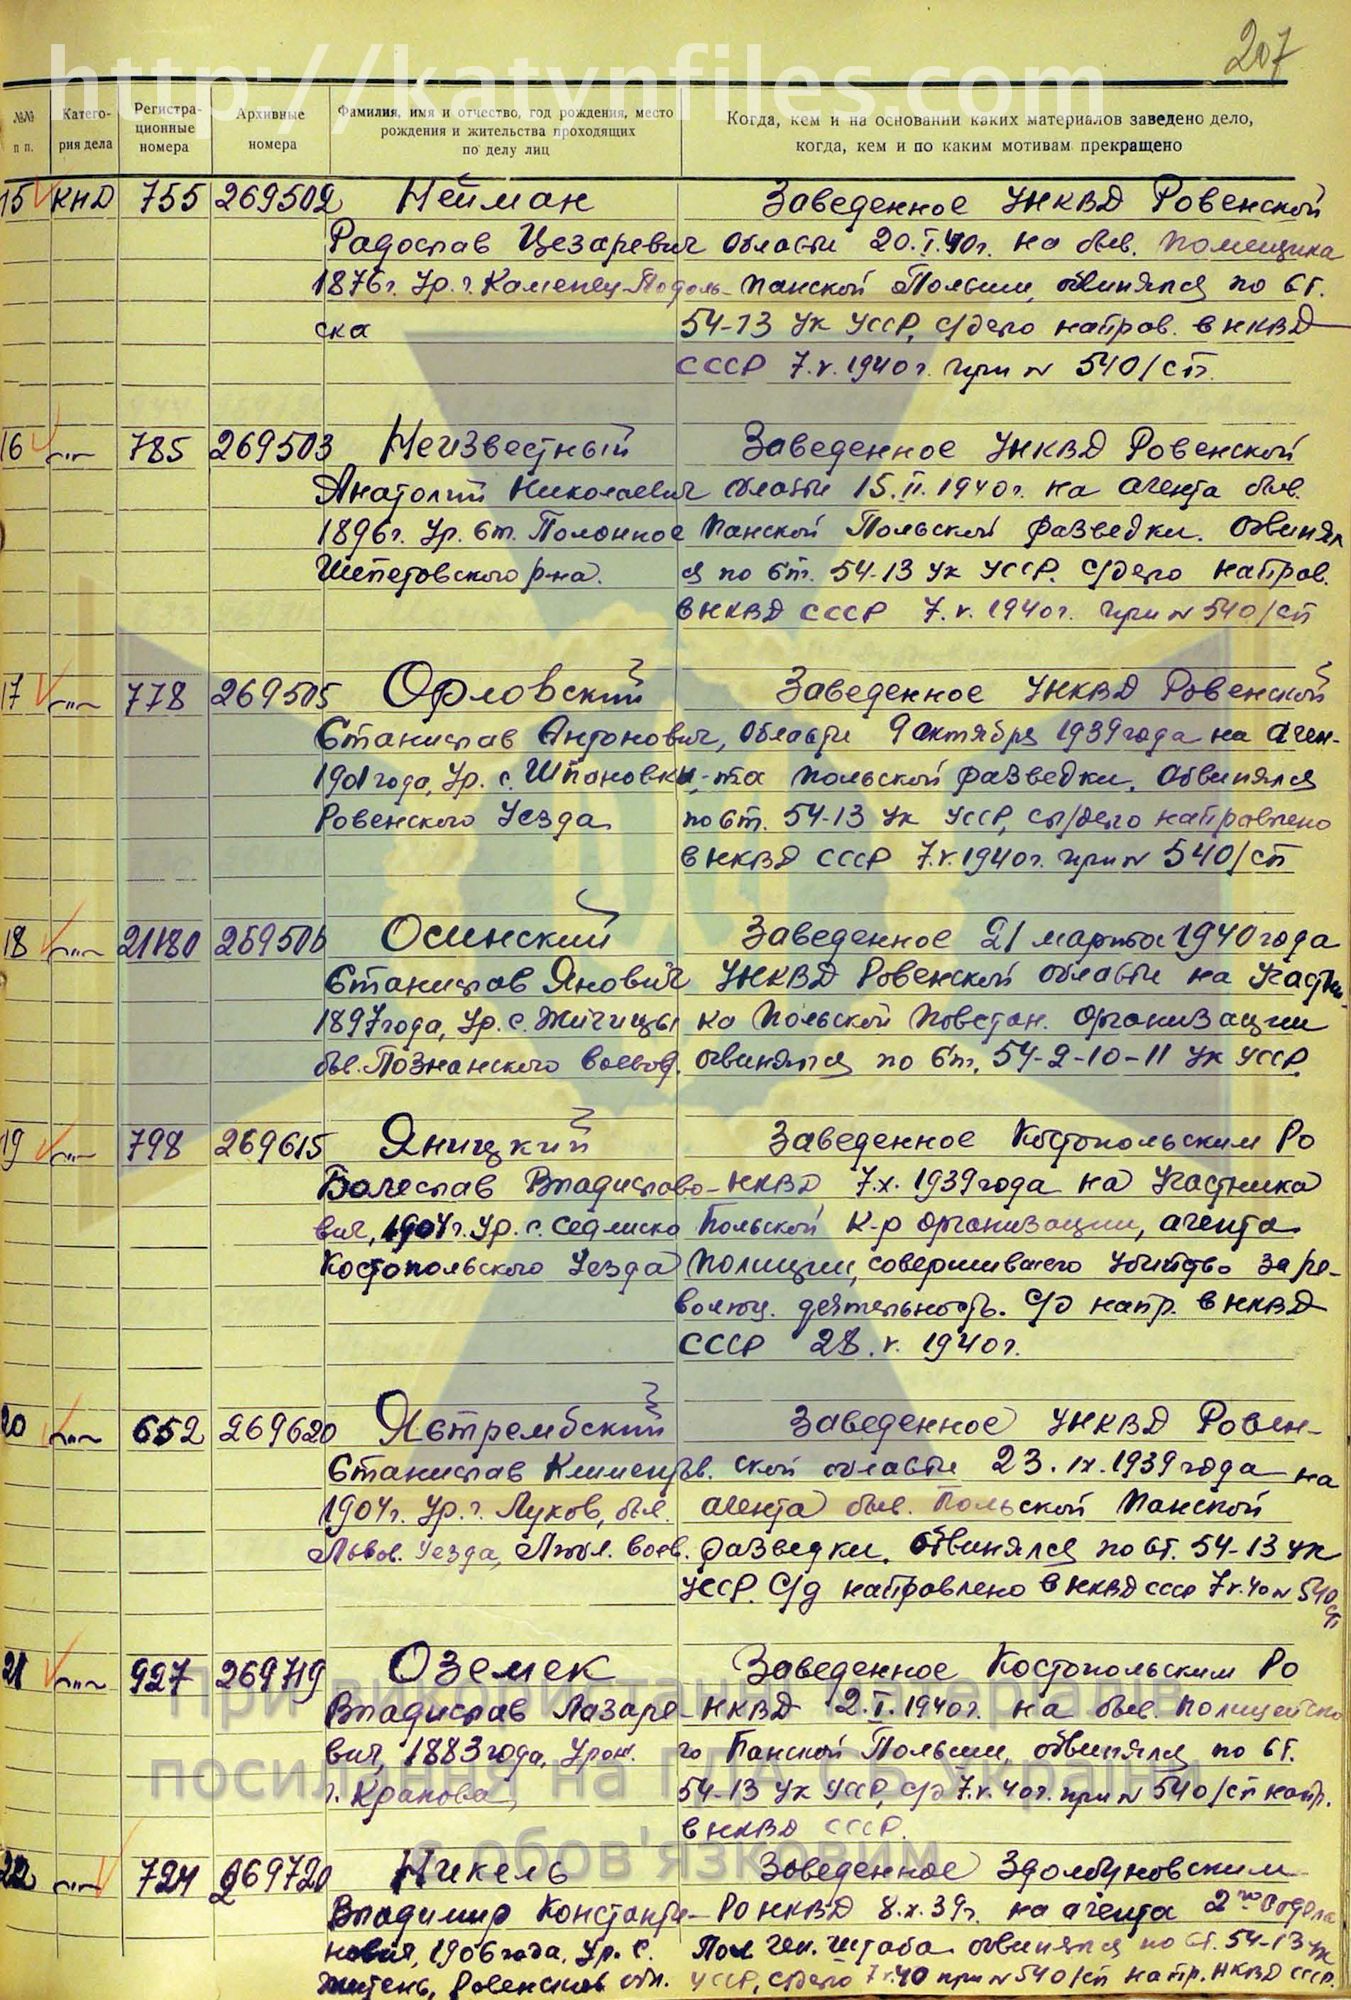 207
http://katynfiles.com
№№ п п.
Катего- рия дела
Регистра- ционные номера
Архивные номера
Фамилия, имя и отчество, год рождения, место рождения и жительства проходящих по делу лиц
Когда, кем и на основании каких материалов заведено дело, когда, кем и по каким мотивам прекращено
15 КНД 755 269502 Нейман Заведенное УНКВД Ровенской
Радослав Цезаревич области 20.I.40г. на быв. помещика
1876г. Ур. г. Каменец-Подоль- панской Польши, обвинялся по ст.
ска 54-13 УК УССР, с/дело направ. в НКВД
СССР 7.V.1940г. при № 540/сп.
16 —"— 785 269503 Неизвестный Заведенное УНКВД Ровенской
Анатолий Николаевич области 15.II.1940г. на агента быв.
1896г. Ур. ст. Полонное панской Польской разведки. Обвинял
Шепетовского р-на. ся по ст. 54-13 УК УССР. с/дело направ.
в НКВД СССР 7.V.1940г. при № 540/сп
17 —"— 778 269505 Орловский Заведенное УНКВД Ровенской
Станислав Антонович, области 9 октября 1939 года на аген-
1901 года, Ур. с. Шпановки, та польской разведки. Обвинялся
Ровенского Уезда по ст. 54-13 УК УССР, сл/дело направлено
в НКВД СССР 7.V.1940г. при № 540/сп
18 —"— 21180 269506 Осинский Заведенное 21 марта 1940 года
Станислав Янович УНКВД Ровенской области на Участни-
1897 года, Ур. с. Жичицы ка Польской Повстан. Организации
быв. Познанского воевод. обвинялся по ст. 54-2-10-11 УК УССР.
19 —"— 798 269615 Яницкий Заведенное Костопольским Ро
Болеслав Владиславо- НКВД 7.X.1939 года на Участника
вич, 1904г. Ур. с. Седлиско Польской к-р организации, агента
Костопольского Уезда полиции, совершившего убийство за ре-
волюц. деятельность. С/д напр. в НКВД
СССР 28.V.1940г.
20 —"— 652 269620 Ястрембский Заведенное УНКВД Ровен-
Станислав Климентьев. ской области 23.IX.1939 года на
1904г. Ур. г. Луков, был. агента быв. Польской Панской
Львов. Уезда, Любл. воев. разведки. Обвинялся по ст. 54-13 УК
УССР. С/д направлено в НКВД СССР 7.V.40 № 540/сп
21 —"— 927 269719 Оземек Заведенное Костопольским Ро
Владислав Лазаре- НКВД 2.I.1940г. на быв. Полицейско
вич, 1883 года, Урож. го Панской Польши, обвинялся по ст.
г. Кракова, 54-13 УК УССР, с/д 7.V.40г. при № 540/сп напр.
в НКВД СССР.
22 —"— 724 269720 Никель Заведенное Здолбуновским
Владимир Константи- РО НКВД 8.X.39г. на агента 2го Отдела
нович, 1906 года, Ур. с. Пол ген. штаба. обвинялся по ст. 54-13 УК
Житень, Ровенской обл. УССР, с/дело 7.V.40 при № 540/сп напр. НКВД СССР.
При використанні матеріалів
посилання на ГДА СБ України
є обов'язковим